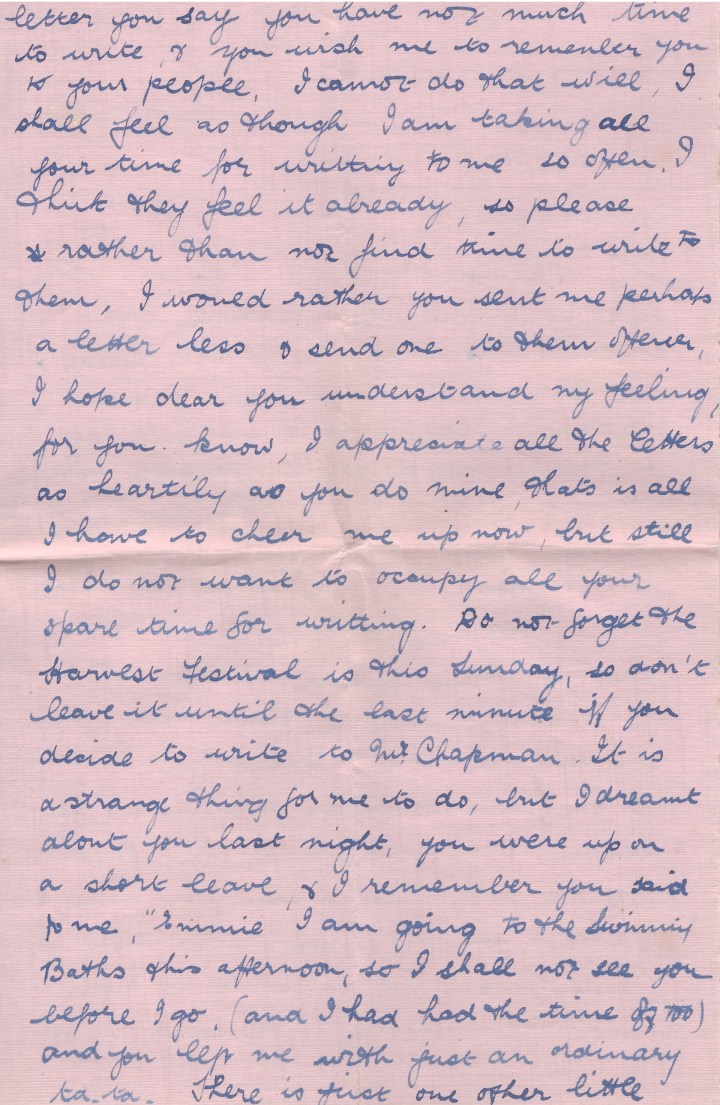 letter you say you have not much time
to write, & you wish me to remember you
to your people. I cannot do that Will, I
shall feel as though I am taking all
your time for writting to me so often. I
think they feel it already, so please
rather than not find time to write to
them, I would rather you sent me perhaps
a letter less & send one to them oftener,
I hope dear you understand my feeling,
for you know, I appreciate all the letters
as heartily as you do mine, thats is all
I have to cheer me up now, but still
I do not want to occupy all your
spare time for writting. Do not forget the
Harvest Festival is this Sunday, so don't
leave it until the last minute if you
decide to write to Mr. Chapman. It is
a strange thing for me to do, but I dreamt
about you last night, you were up on
a short leave, & I remember you said
to me, "Emmie I am going to the Swimming
Baths this afternoon, so I shall not see you
before I go, (and I had had the time off too)
and you left me with just an ordinary
ta-ta. There is just one other little